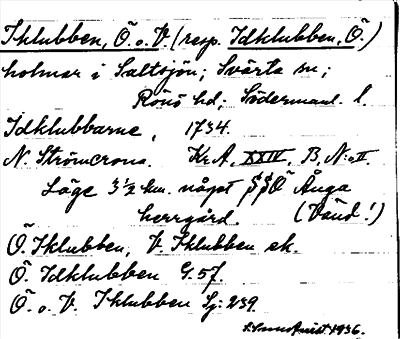 Iklubben, Ö. o. V. (resp. Idklubben, Ö.)
holmar i Saltsjön; Svärta sn;
Rönö hd; Södermanl. l.
Idklubbarne, 1734.
N. Strömcrona. Kr. A, XXIV, B, N:o II.
Läge 3 1/2 km. något SSO Ånga
herrgård. (Vänd!)
Ö. Iklubben, V. Iklubben ek.
Ö. Idklubben G. 57.
Ö. o. V. Iklubben Sj: 239.
1936.